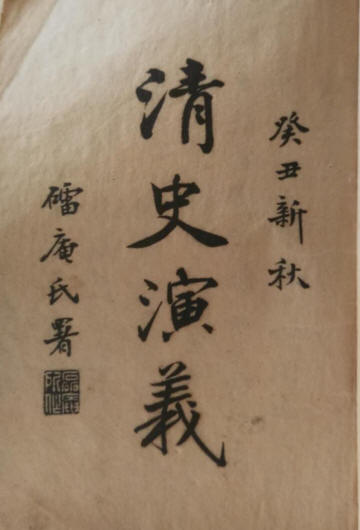 癸丑新秋
清史演義
礌庵氏署